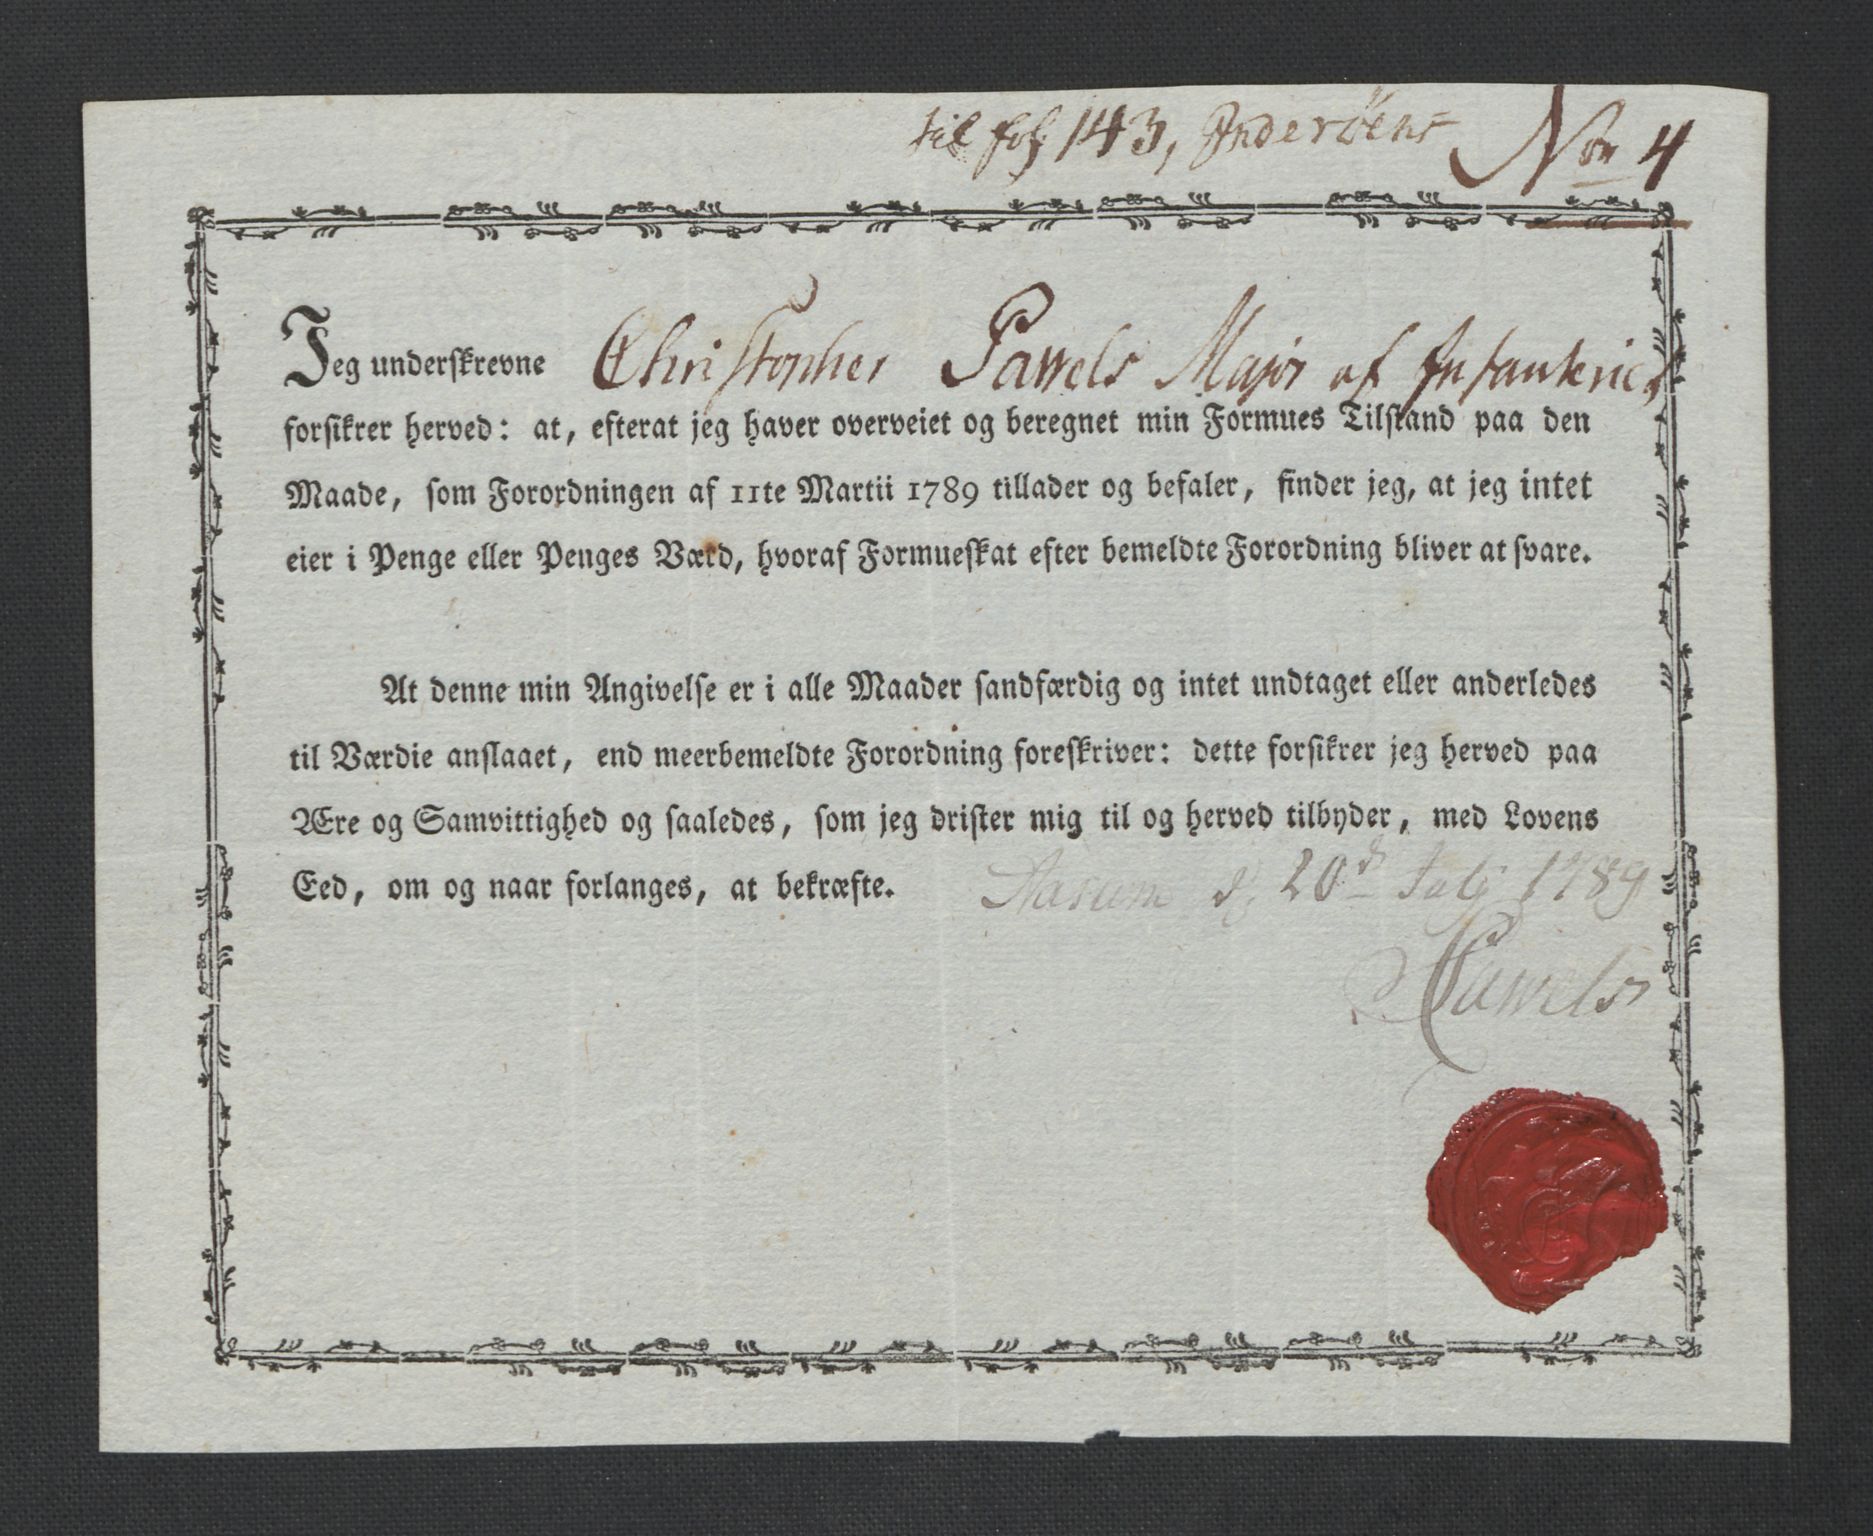 til fol 143, Inderøens No 4
Jeg underskrevne Christopher Pawels Major af Infanteriet
forsikrer herved: at, efterat jeg haver overveiet og beregnet min Formues Tilstand paa den
Maade, som Forordningen af 11te Martii 1789 tillader og befaler, finder jeg, at jeg intet
eier i Penge eller Penges Værd, hvoraf Formueskat efter bemeldte Forordning bliver at svare.
At denne min Angivelse er i alle Maader sandfærdig og intet undtaget eller anderledes
til Værdie anslaaet, end meerbemeldte Forordning foreskriver: dette forsikrer jeg herved paa
Ære og Samvittighed og saaledes, som jeg drister mig til og herved tilbyder, med Lovens
Eed, om og naar forlanges, at bekræfte. d. 20de July 1789
Pawels